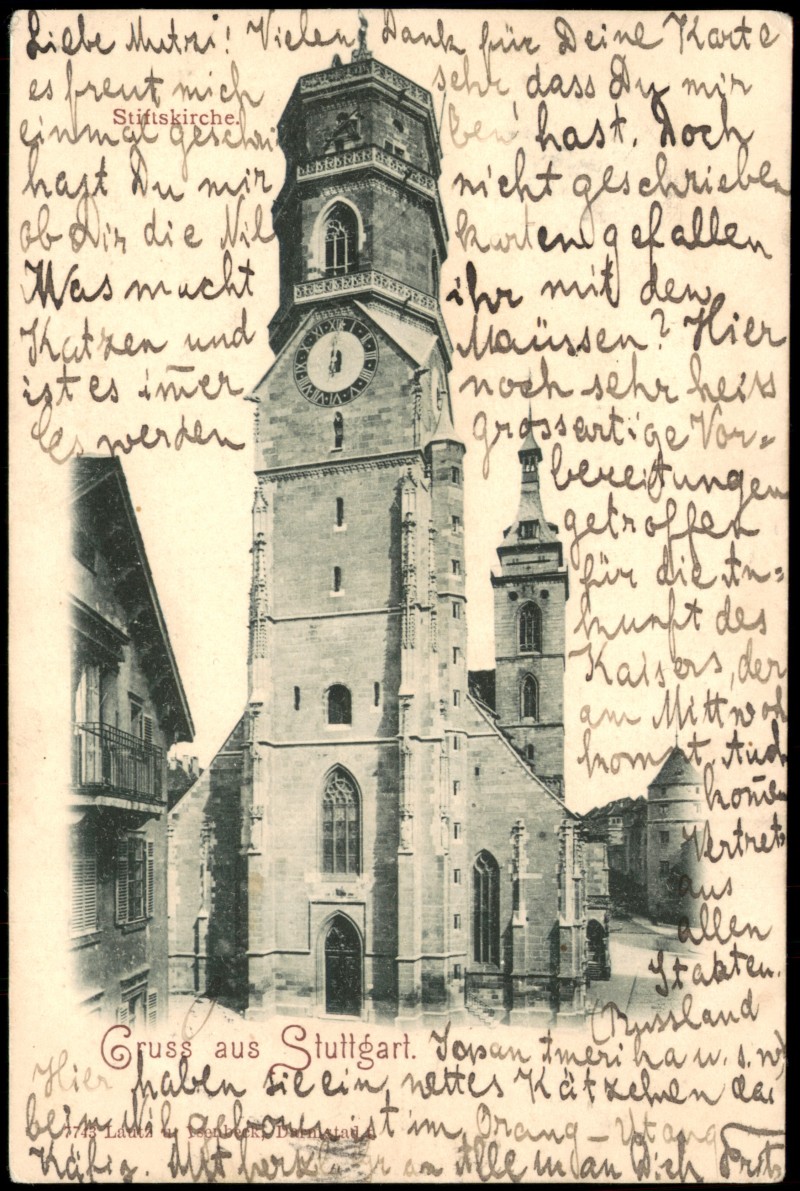 Liebe Mutzi! Vielen Dank für Deine Karte
es freut mich sehr, dass Du mir
Stiftskirche.
einmal geschrieben hast. Doch
hast Du mir nicht geschrieben
ob Dir die Nilkarten gefallen
Was macht ihr mit den
Katzen und Mäussen? Hier
ist es im̄er noch sehr heiss
Es werden grossartige Vor=
bereitungen
getroffen
für die An=
kunft des
Kaisers, der
am Mittwoch
kommt. Auch
kom̄en
Vertret
aus
allen
Staaten.
(Russland
Gruss aus Stuttgart.
Japan Amerika u. s. w)
Hier haben sie ein nettes Kätzchen das
beim geboren ist im Orang-Utang
7743 Lautz u. Isenbeck, Darmstadt.
Käfig. Mit an Alle u an Dich Fritz